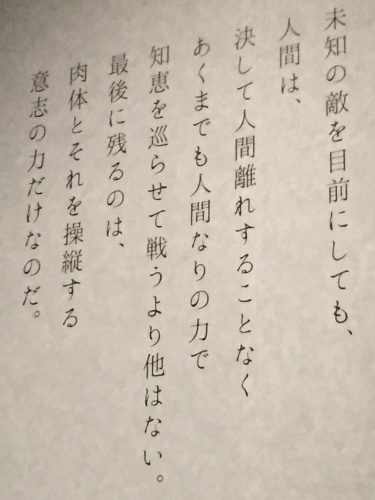 未知の敵を目前にしても、
人間は、
決して人間離れすることなく
あくまでも人間なりの力で
知恵を巡らせて戦うより他はない。
最後に残るのは、
肉体とそれを操縦する
意志の力だけなのだ。